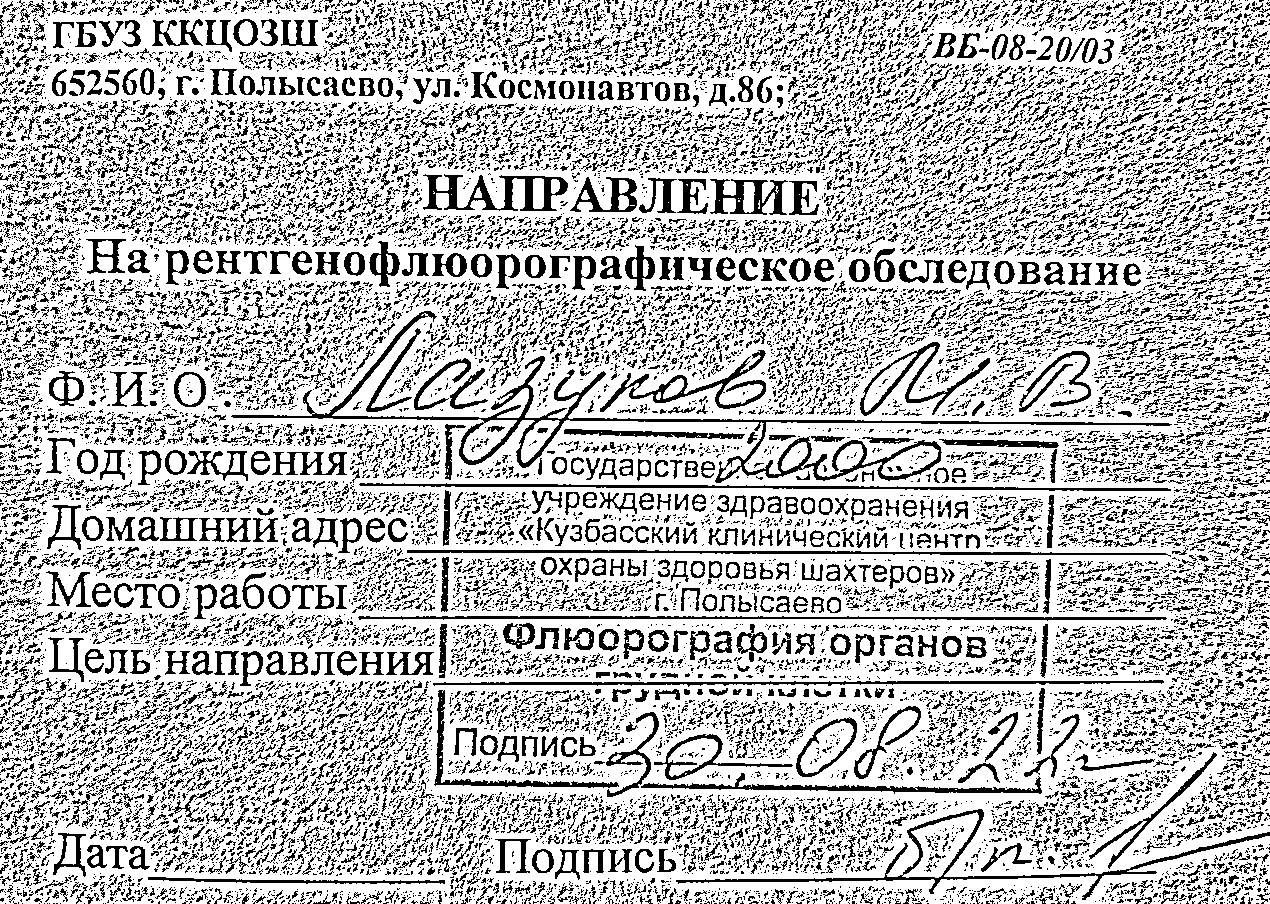 ГБУЗ ККЦОЗШ
ВБ-08-20/03
652560, г. Полысаево, ул. Космонавтов, д.86;
НАПРАВЛЕНИЕ
На рентгенофлюорографическое обследование
Ф. И. О. Лазуков И. В.
Год рождения 2000
Домашний адрес
Место работы
Цель направления
учреждение здравоохранения
«Кузбасский клинический центр
охраны здоровья шахтеров»
г. Полысаево
Флюорография органов
грудной клетки
Подпись 30.08.22г
Дата
Подпись